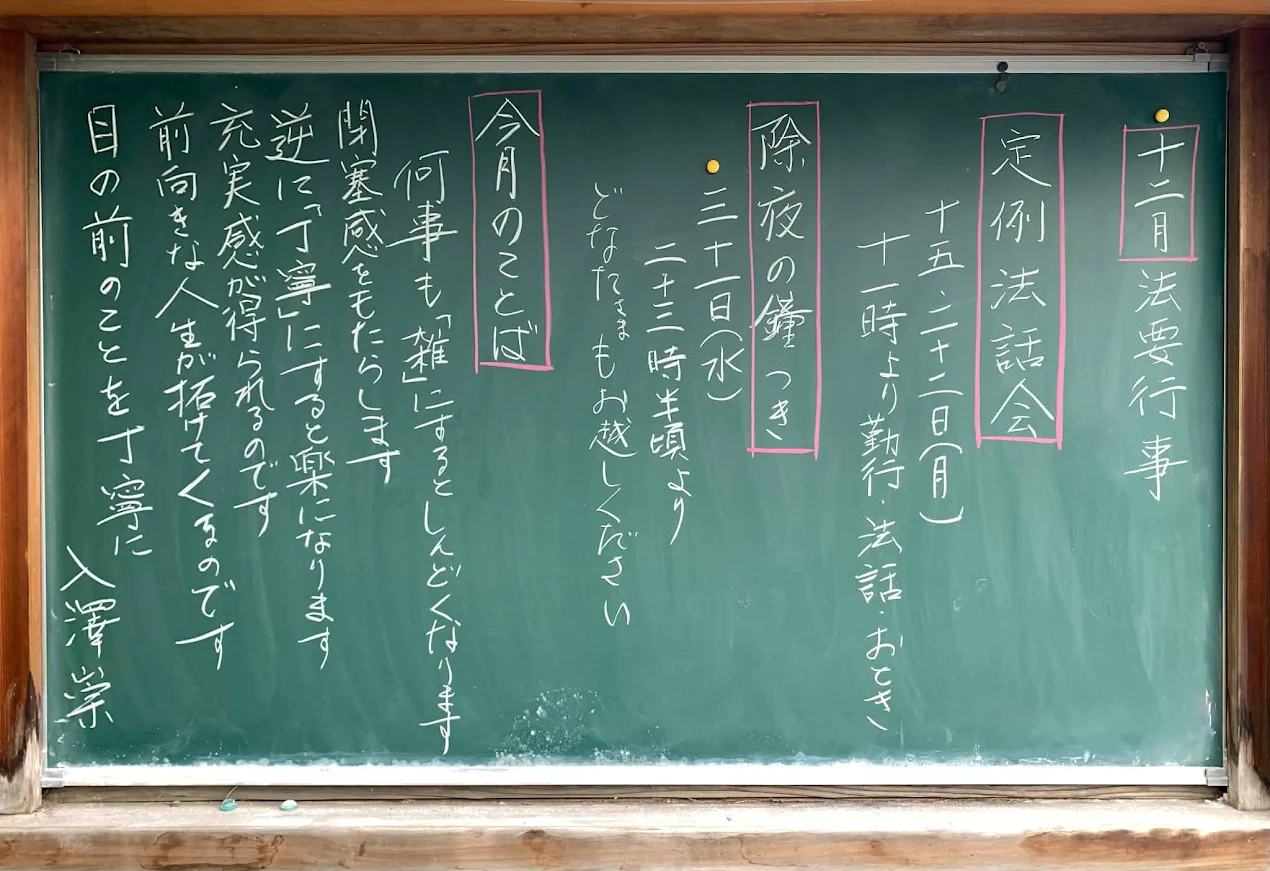 十二月法要行事
定例法話会
十五・二十二日(月)
十一時より勤行・法話・おとき
除夜の鐘つき
三十一日(水)
二十三時半頃より
どなたさまもお越しください
今月のことば
何事も「雑」にするとしんどくなります
閉塞感をもたらします
逆に「丁寧」にすると楽になります
充実感が得られるのです
前向きな人生が拓けてくるのです
目の前のことを丁寧に
入澤崇